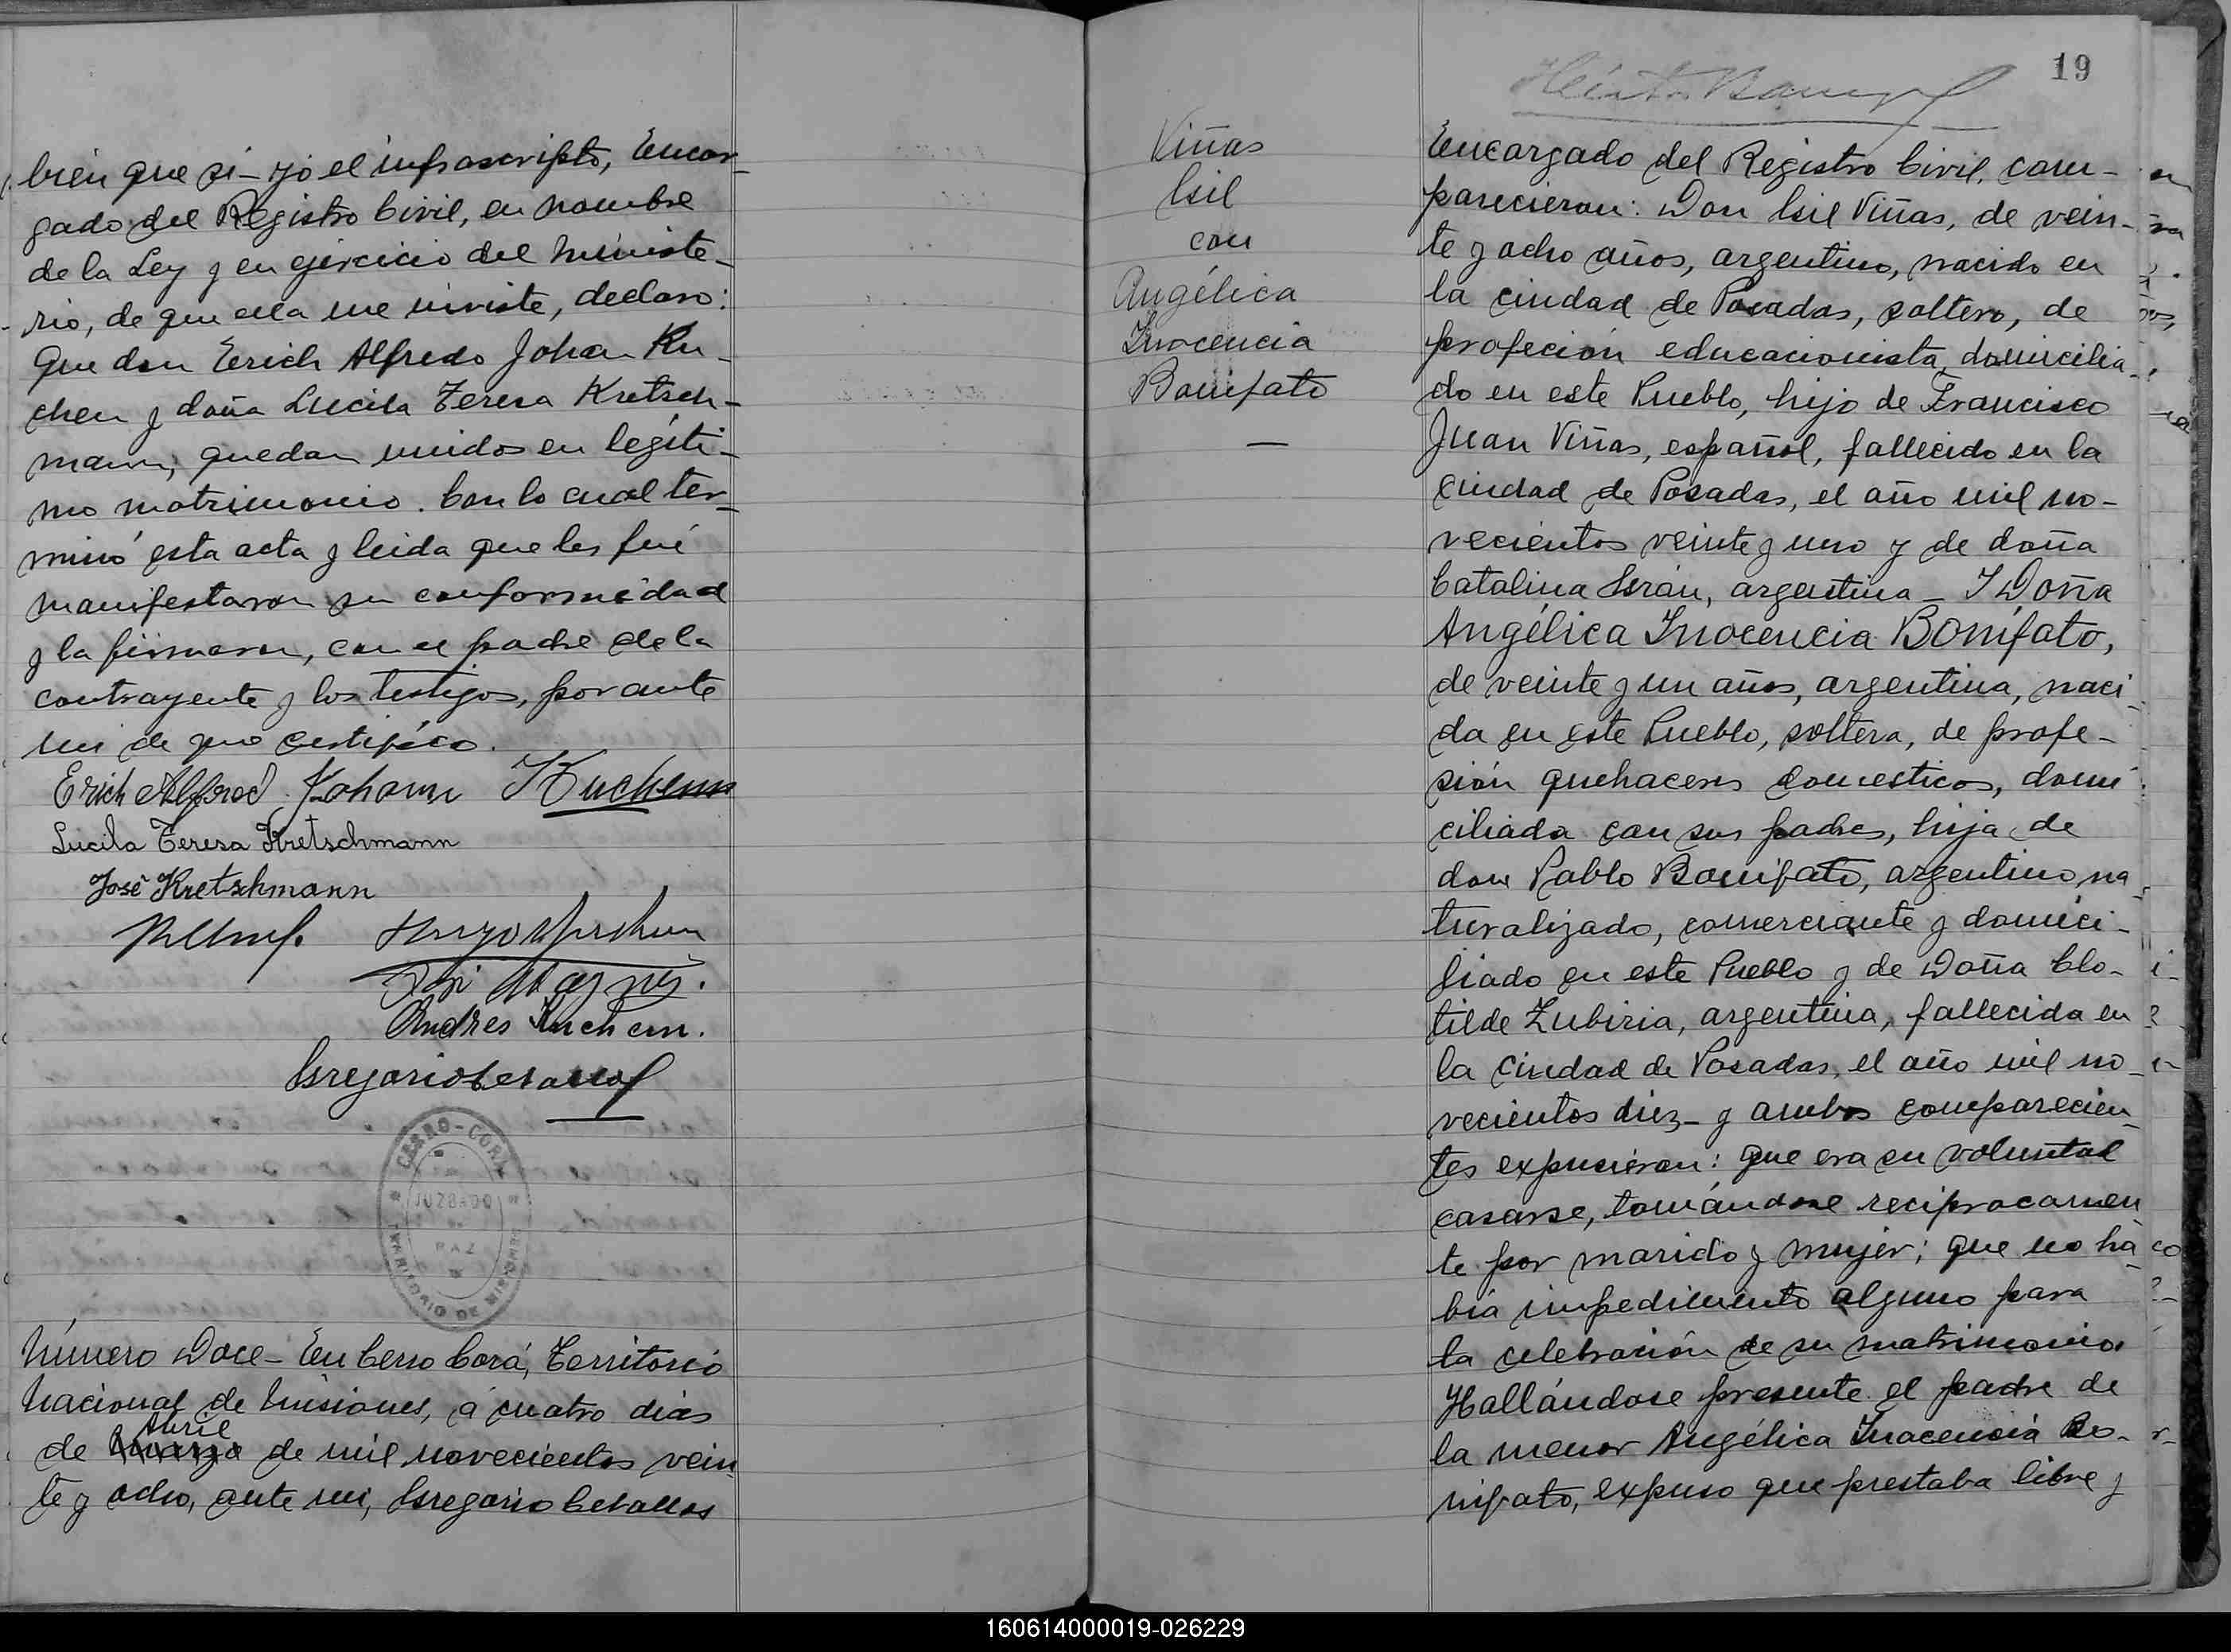 bién que sí - yó el infrascripto, Encar-
gado del Registro Civil, en nombre
de la Ley y en ejercicio del Ministe-
rio, de que ella me inviste, declaro:
Que don Erich Alfredo Johan Ku-
chen y doña Lucila Teresa Kretsch-
mann, quedan unidos en legíti-
mo matrimonio. Con lo cual ter-
minó esta acta y leida que les fué
manifestaron su conformidad
y la firmaron, con el padre de la
contrayente y los testigos, por ante
mi de que certifico.
Erich Alfred Johann Kuchenn
Lucila Teresa Kretschmann
José Kretschmann
Andres Kuchem.
Gregorio Cevallos
CERRO-CORÁ
JUZGADO
PAZ
TERRITORIO DE MISIONES
Número Doce - En Cerro Corá, Territorio
Nacional de Misiones, á cuatro dias
Abril
de Marzo de mil novecientos vein-
te y ocho, ante mi, Gregorio Cevallos
19
Viñas
Isil
con
Angélica
Inocencia
Bonifato
—
Encargado del Registro Civil, com-
parecieron: Don Isil Viñas, de vein-
te y ocho años, argentino, nacido en
la ciudad de Posadas, soltero, de
profeción educacionista, domicilia-
do en este Pueblo, hijo de Francisco
Juan Viñas, español, fallecido en la
Ciudad de Posadas, el año mil no-
vecientos veinte y uno y de doña
Catalina, argentina - Y Doña
Angélica Inocencia Bonifato,
de veinte y un años, argentina, naci-
da en este Pueblo, soltera, de profe-
sión quehaceres domesticos, domi-
ciliada con sus padres, hija de
don Pablo Bonifato, argentino na-
turalizado, comerciante y domici-
liado en este Pueblo y de Doña Clo-
tilde Zubiria, argentina, fallecida en
la Ciudad de Posadas, el año mil no-
vecientos diez - y ambos comparecien-
tes expusieron: que era su voluntad
casarse, tomándose reciprocamen
te por marido y mujer; que no ha-
bia impedimento alguno para
la celebración de su matrimonio.
Hallándose presente el padre de
la menor Angélica Inocencia Bo-
nifato, expuso que prestaba libre y
160614000019-026229